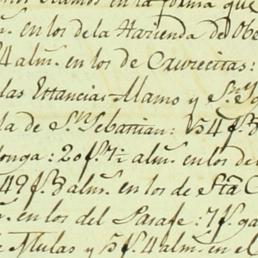 Ramos en la forma que
alm.s en los de la Hazienda de Obe
4 alm.s en los de Cruzecitas:
las Estancias Alamo y S.n Yg
la de S.n Sebastian: 54 f.s 3
onga: 20 f.s 7½ alm.s en los de
49 f.s 8 alm.s en los de Sta. C
en los del Parafe: 7 f.s
e Mulas y 5 f.s 4 alm.s en el